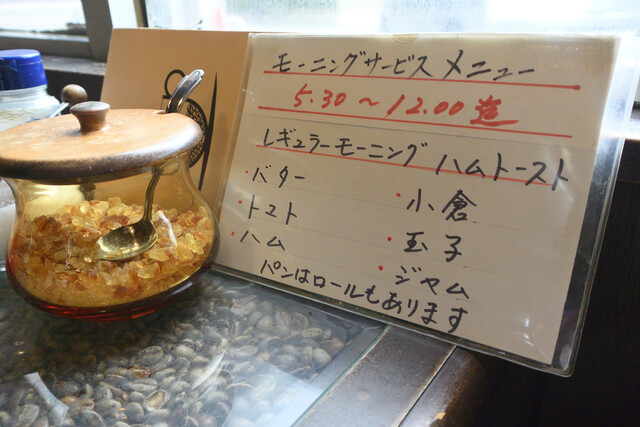 モーニングサービス メニュー
5.30〜12.00迄
レギュラーモーニング ハムトースト
・バター ・小倉
・トマト ・玉子
・ハム ・ジャム
パンはロールもあります